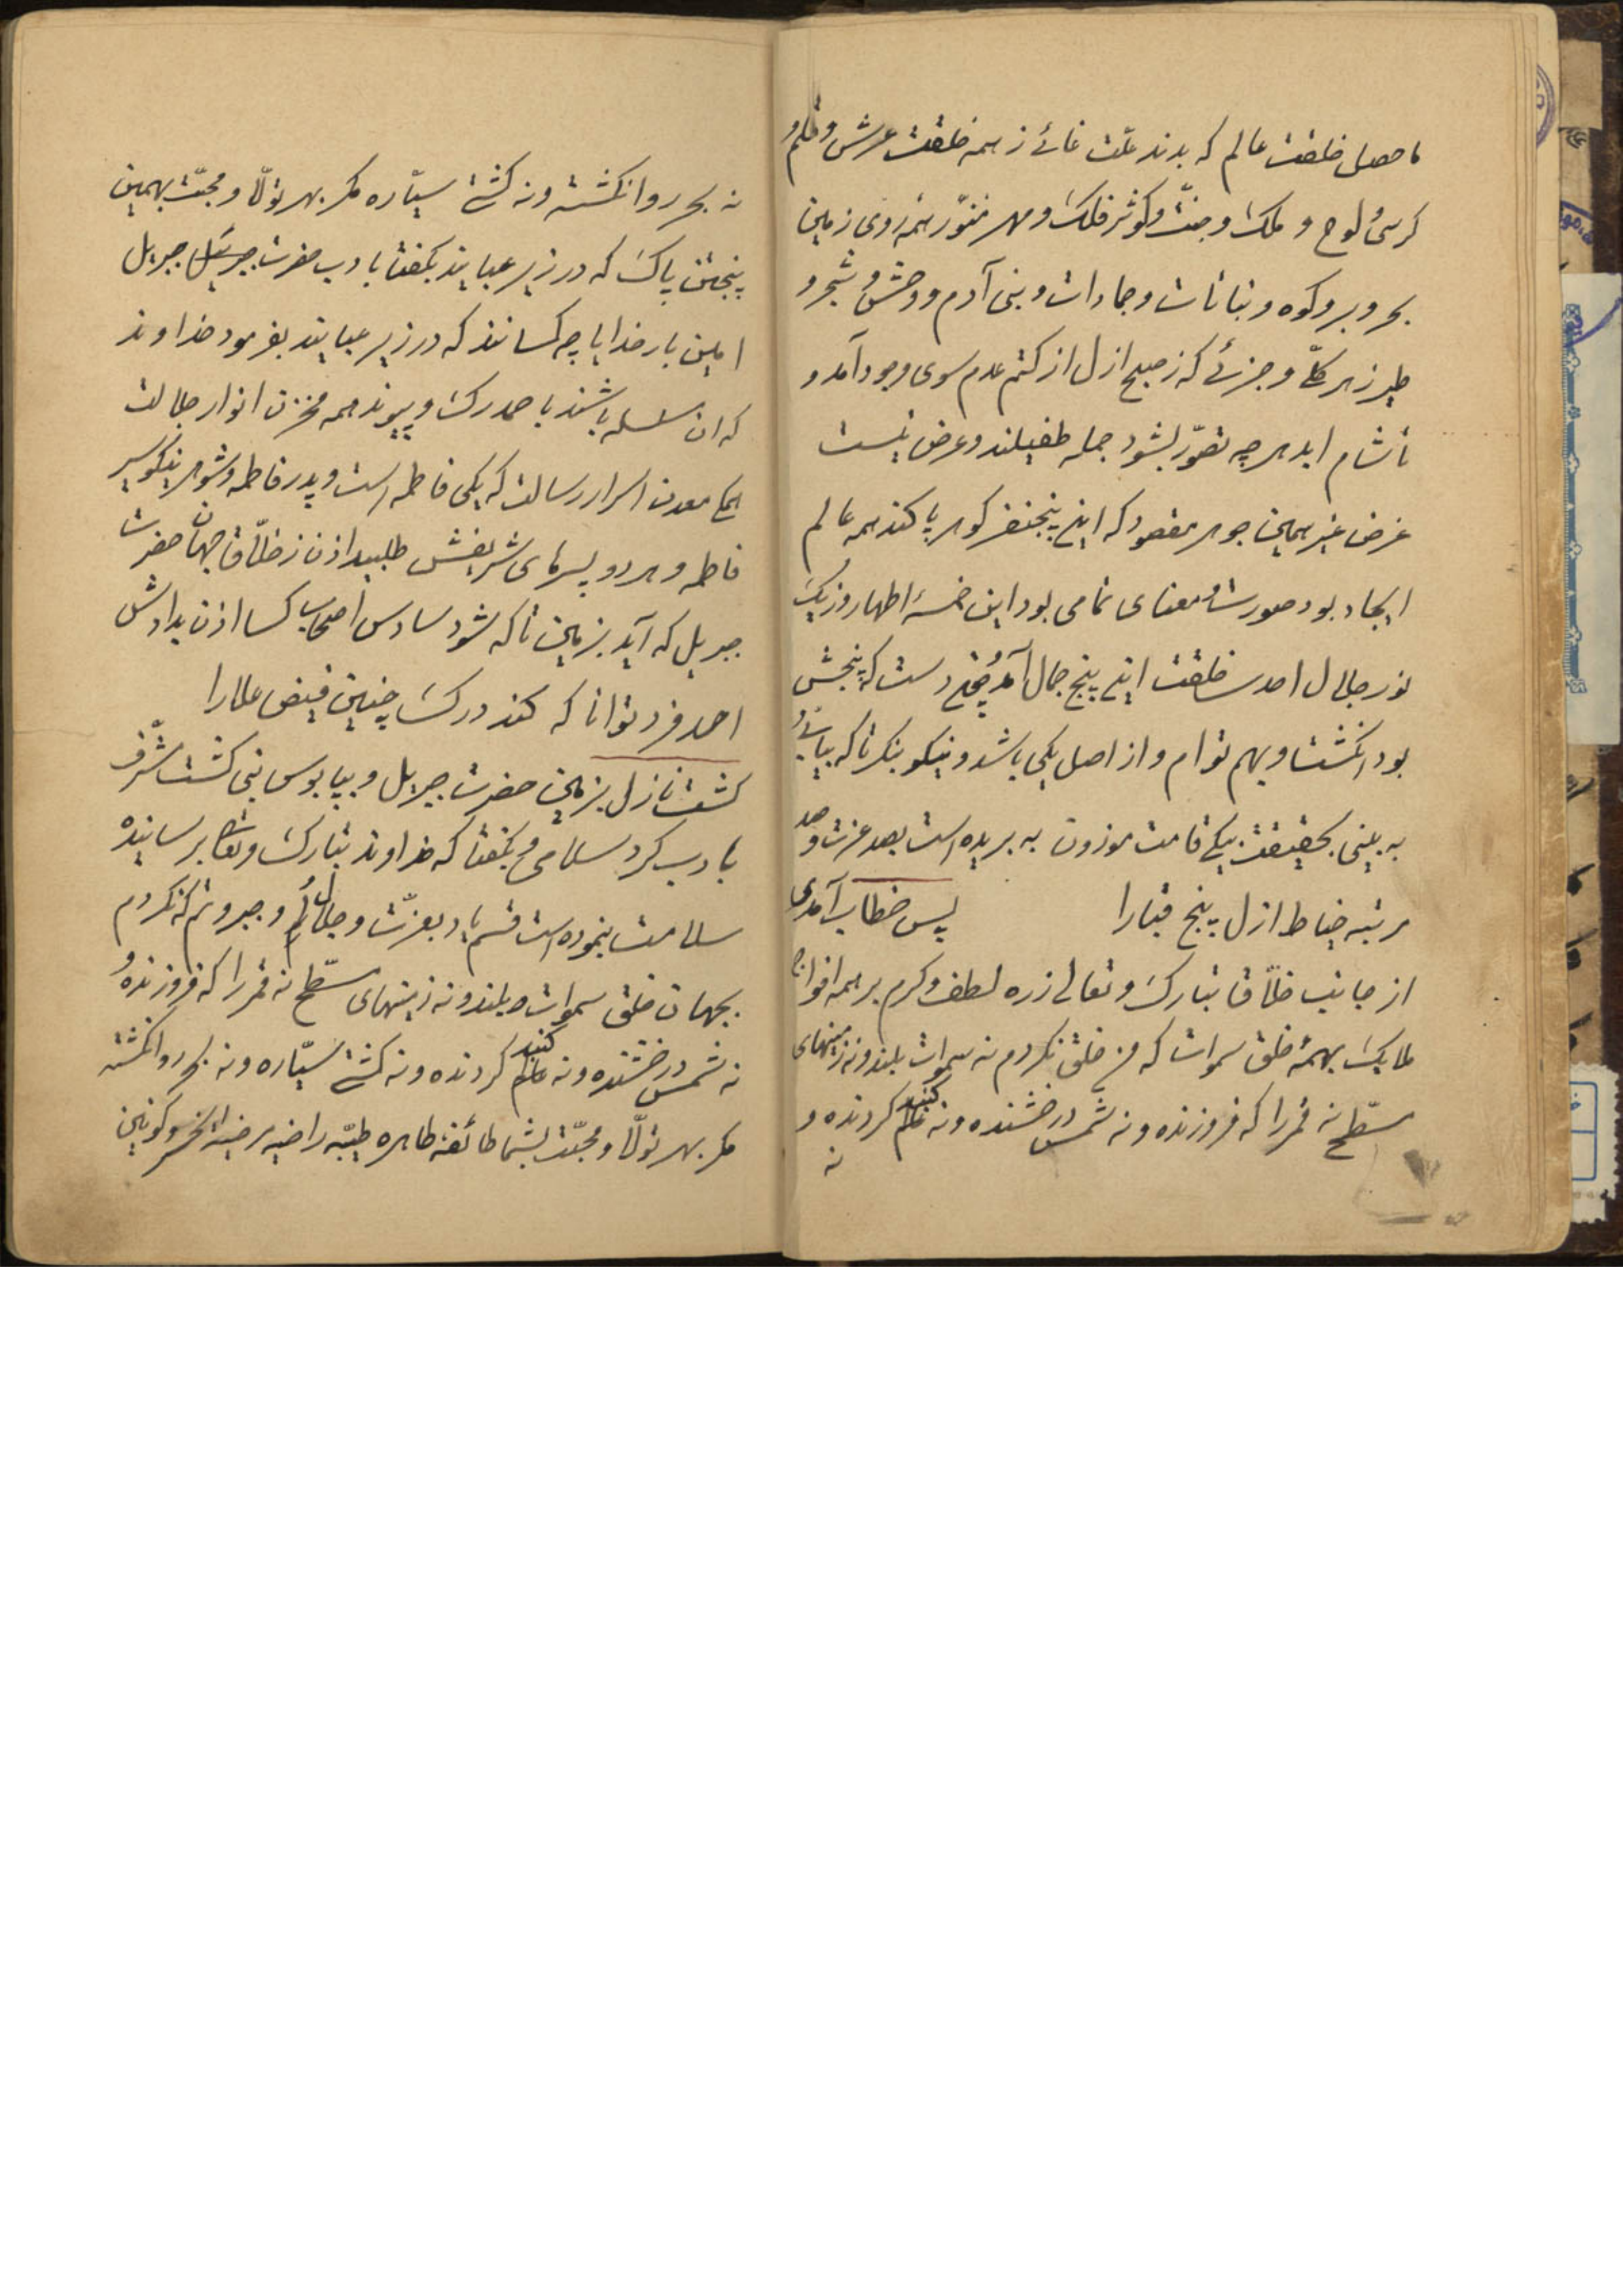 ماحصل خلقت عالم که بدند علّت غائے ز همه خلقت عرش و قلم و
کرسی و لوح و ملک و جنّت و کوثر فلک و مهر منوّر همه روی زمین
بحر و بر و کوه و نباتات و جمادات و بنی آدم و وحش و شجر و
طیر ز هر کلّے و جزئے که ز صبح ازل از کتم عدم سوی وجود آمد و
تا شام ابد هر چه تصوّر بشود جمله طفیلند و عرض نیست
غرض غیر همین جوهر مقصود که این پنج نفر گوهر پاکند همه عالم
ایجاد بود صورت و معنای تمامی بود این خمسهٔ اطهار و ز یک
نور جلال احدست خلقت این پنج جمال آمد و دست که پنجش
بود انگشت و بهم توام و از اصل یکی باشد و نیکو بنگر تا که بیابی و
به بینی بحقیقت بیکی قامت موزون به بریده است بصد عزت و صد
مرتبه خیاط ازل پنج قبارا
پس خطاب آمدی
از جانب خلّاق تبارک و تعالی ز ره لطف و کرم بر همه افواج
ملایک بهمهٔ خلق سموات که من خلق نکردم نه سموات بلند و نه زمینهای
مسطّح نه قمر را که فروزنده و نه شمس درخشنده و نه گنبد گردنده و
نه
نه بحر روا نگشته و نه کشتے سیّاره مگر بهر تولّا و محبّت بهمین
پنجتن پاک که در زیر عبایند بگفتا بادب حضرت جبریل
امین بار خدایا چه کسانند که در زیر عبایند بفرمود خداوند
که ان سلسله باشند باحمد رگ و پیوند همه مخزن انوار جلالت
همگی معدن اسرار رسالت که یکی فاطمه است و پدر فاطمه و شوهر نیکو سیر
فاطمه و هر دو پسرهای شریفش طلبید اذن ز خلّاق جهان حضرت
جبریل که آید بزمین تا که شود سادس اصحاب کسا اذن بدادش
احد فرد توانا که کند درک چنین فیض علارا
گشت نازل بزمین حضرت جبریل و بپابوس نبی گشت مشرّف
بادب کرد سلامی و بگفتا که خداوند تبارک و تعالی برسانیده
سلامت بنموده است قسم یاد بعزّت و جلالم و جبروتم که نکردم
بجهان خلق سموات بلند و نه زمینهای مسطّح نه قمر را که فروزنده و
نه شمس درخشنده و نه گنبد گردنده و نه کشتے سیّاره و نه بحر روا نگشته
مگر بهر تولّا و محبّت بشما طائفهٔ طاهره طیّبه راضیه مرضیه